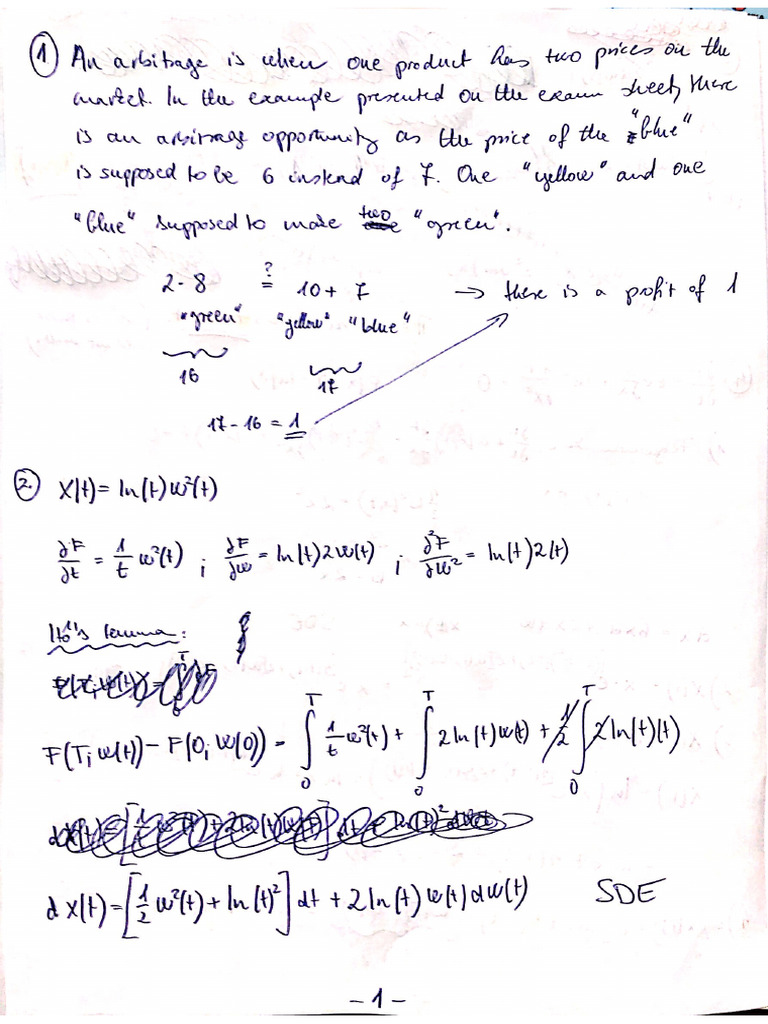 1 An arbitrage is when one product has two prices on the
market. In the example presented on the exam sheet, there
is an arbitrage opportunity as the price of the "blue"
is supposed to be 6 instead of 7. One "yellow" and one
"blue" supposed to make two "green".
2·8 ?= 10+7 → there is a profit of 1
"green" "yellow" "blue"
16 17
17-16 = 1
2. X(t)= ln(t)w²(t)
∂F/∂t = 1/t w²(t) ; ∂F/∂w = ln(t)2w(t) ; ∂²F/∂w² = ln(t)2(t)
Itô's lemma:
F(T; w(t)) - F(0; w(0)) = ∫₀ᵀ 1/t w²(t) + ∫₀ᵀ 2ln(t)w(t) + 1/2 ∫₀ᵀ 2ln(t)(t)
dX(t)=[1/2 w²(t)+ln(t)²]dt + 2ln(t)w(t)dw(t) SDE
-1-